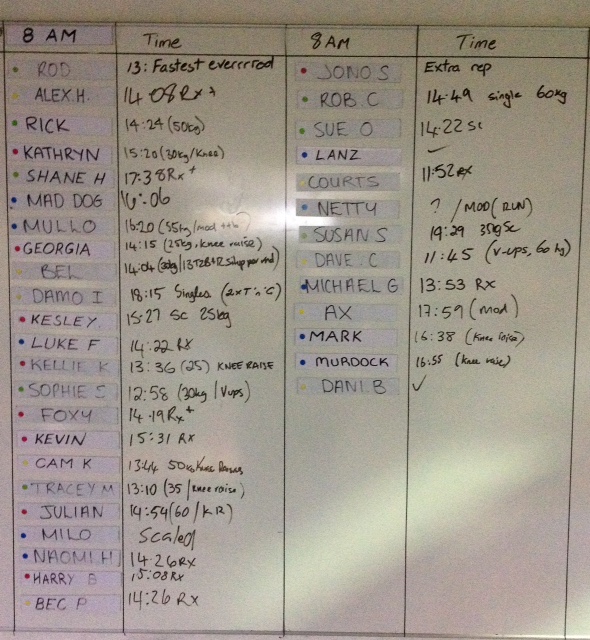 8 AM Time
ROD 13: Fastest everrrrod
ALEX.H. 14 08 Rx +
RICK 14:24 (50kg)
KATHRYN 15:20 (30kg/Knee)
SHANE H 17:38 Rx +
MAD DOG 16:06
MULLO 16:20 (55kg/mod
GEORGIA 14:15 (25kg, knee raise)
BEL 14:04
DAMO I 18:15 Singles (2xT'n'C)
KESLEY 15:27 sc 25kg
LUKE F 14:22 RX
KELLIE K 13:36 (25) KNEE RAISE
SOPHIE S 12:58 (30kg/Vups)
FOXY 14.19 Rx +
KEVIN 15:31 RX
CAM K 13:44 50kg Knee Raises
TRACEY M 13:10 (35/knee raise)
JULIAN 14:54 (60/KR)
MILO Scaled
NAOMI.H 14:26 RX
HARRY B 15:08 Rx
BEC P 14:26 RX
8AM Time
JONO S Extra rep
ROB.C 14:49 single 60kg
SUE O 14:22 sc
LANZ
COURTS 11:52 RX
NETTY ? / MOD (RUN)
SUSAN S 19:29 35kg Sc
DAVE.C 11:45 (v-ups, 60 kg)
MICHAEL G 13:53 Rx
AX 17:59 (mod)
MARK 16:38 (knee raise)
MURDOCK 16:55 (knee raise)
DANI.B ✓